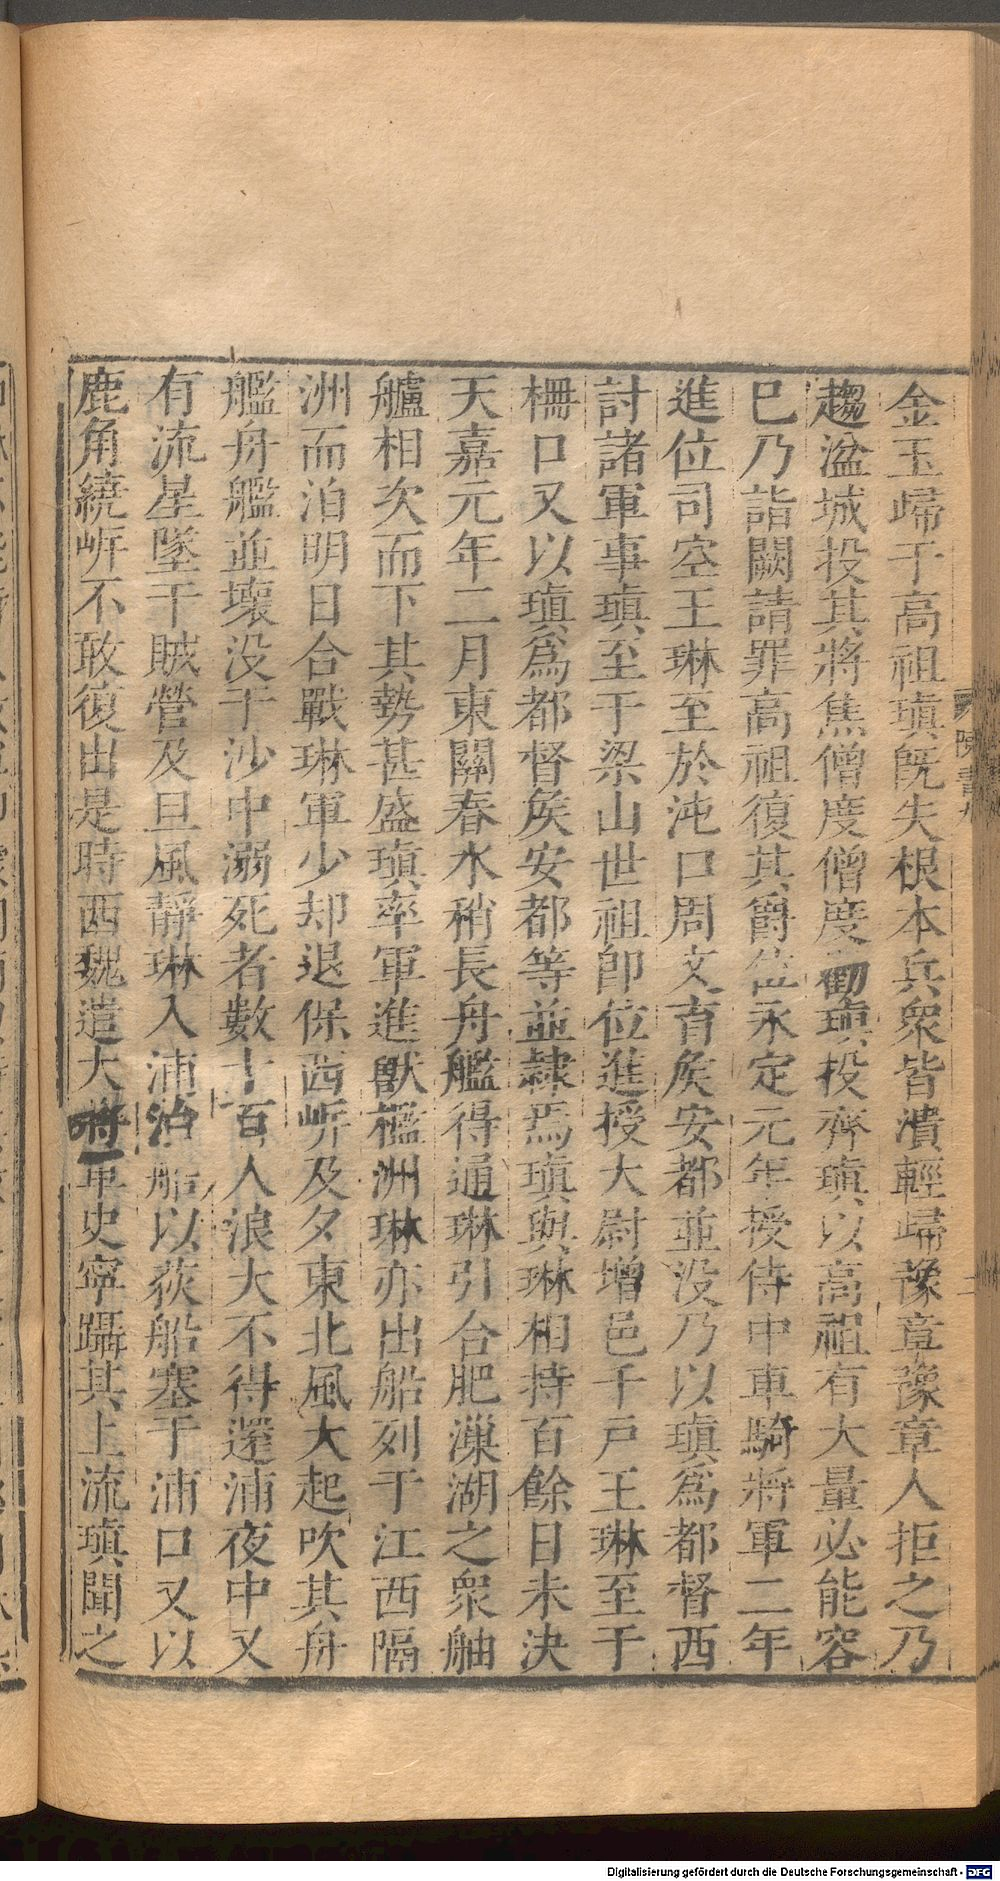 金玉歸于高祖瑱旣失根本兵衆皆潰輕歸豫章豫章人拒之乃
趨湓城投其將焦僧度僧度勸瑱投齊瑱以高祖有大量必能容
已乃詣闕請罪高祖復其爵位永定元年授侍中車騎將軍二年
進位司空王琳至於沌口周文育矦安都並没乃以瑱爲都督西
討諸軍事瑱至于梁山世祖卽位進授大尉增邑千戸王琳至于
柵口又以瑱爲都督矦安都等並隷焉瑱與琳相持百餘日未決
天嘉元年二月東關春水稍長舟艦得通琳引合肥漅湖之衆舳
艫相次而下其勢甚盛瑱率軍進獸檻洲琳亦出船列于江西隔
洲而泊明日合戰琳軍少却退保西岓及夕東北風大起吹其舟
艦舟艦並壞没于沙中溺死者數十百人浪大不得還浦夜中又
有流星墜于賊營及旦風靜琳入浦治船以荻船塞于浦口又以
鹿角繞岓不敢復出是時西魏遣大將軍史寧躡其上流瑱聞之
陳書九
Digitalisierung gefördert durch die Deutsche Forschungsgemeinschaft - DFG